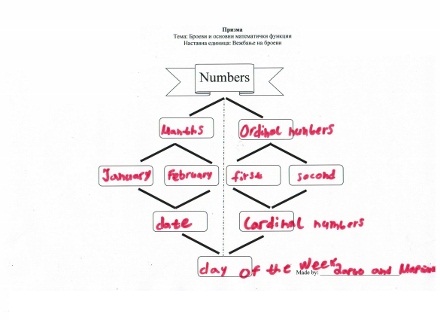 Призма
Тема: Броеви и основни математички функции
Наставна единица: Вежбање на броеви
Numbers
Months Ordinal numbers
January February first second
date Cardinal numbers
day of the week
Made by: and